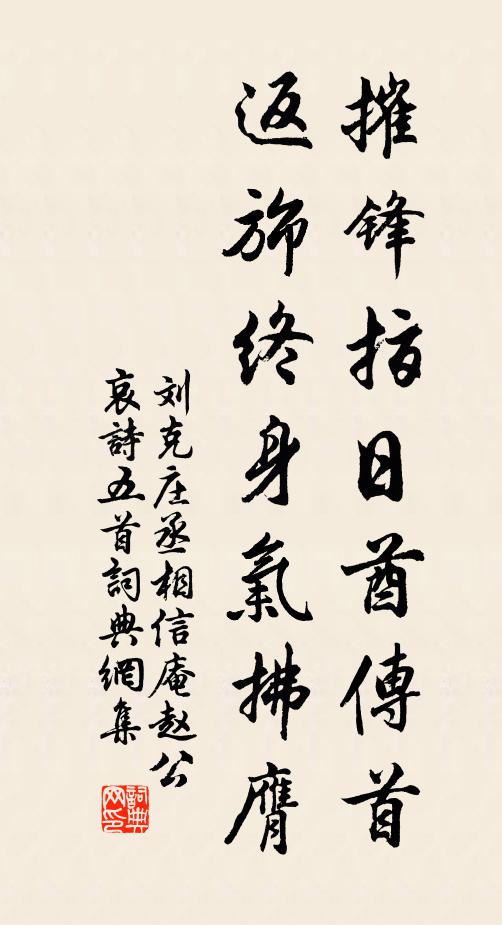 摧锋指日酋傳首
返旆终身氣拂膺
刘克庄丞相信庵赵公
哀詩五首詞典網集
詞典网印